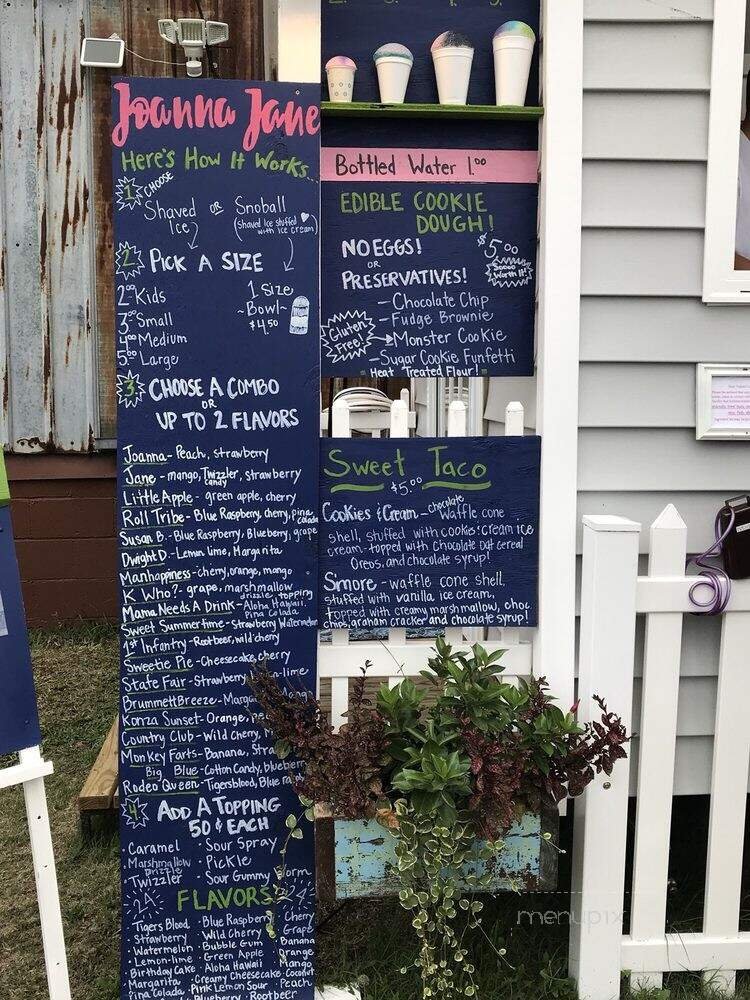 Joanna Jane
Here's How It Works...
1 CHOOSE
Shaved Ice or Snoball
(Shaved Ice stuffed with ice cream)
2 PICK A SIZE
2.00 Kids
3.00 Small
4.00 Medium
5.00 Large
1 Size
~Bowl~
$4.50
3 CHOOSE A COMBO
OR
UP TO 2 FLAVORS
Joanna - Peach, strawberry
Jane - mango, Twizzler candy, strawberry
Little Apple - green apple, cherry
Roll Tribe - Blue Raspberry, cherry, pina colada
Susan B. - Blue Raspberry, Blueberry, grape
Dwight D. - Lemon Lime, Margarita
Manhappiness - cherry, orange, mango
K Who? - grape, marshmallow drizzle topping
Mama Needs A Drink - Aloha Hawaii, Pina Colada
Sweet Summertime - Strawberry Watermelon
1st Infantry - Rootbeer, wild cherry
Sweetie Pie - Cheesecake, cherry
State Fair - Strawberry, -lime
Brummett Breeze - Mango
Konza Sunset - Orange,
Country Club - Wild cherry,
Monkey Farts - Banana,
Big Blue - Cotton Candy, blueberry
Rodeo Queen - Tigersblood, Blue
4 ADD A TOPPING
50¢ EACH
• Caramel • Sour Spray
• Marshmallow Drizzle • Pickle
• Twizzler • Sour Gummy Worm
24 FLAVORS 24
• Tigers Blood • Blue Raspberry • Cherry
• Strawberry • Wild Cherry • Grape
• Watermelon • Bubble Gum • Banana
• Lemon-lime • Green Apple • Orange
• Birthday Cake • Aloha Hawaii • Mango
• Margarita • Creamy Cheesecake • Coconut
• Pina Colada • Pink Lemon Sour • Peach
Blueberry • Rootbeer
Bottled Water 1.00
EDIBLE COOKIE
DOUGH!
NO EGGS!
OR
PRESERVATIVES!
$5.00
Soooo Worth It!
- Chocolate Chip
- Fudge Brownie
Gluten Free! → Monster Cookie
- Sugar Cookie Funfetti
Heat Treated Flour!
Sweet Taco
$5.00
Cookies & Cream - chocolate waffle cone
shell, stuffed with cookies & cream ice
cream - topped with chocolate cereal
Oreos, and chocolate syrup!
S'more - waffle cone shell,
stuffed with vanilla ice cream,
topped with creamy marshmallow, choc
chips, graham cracker and chocolate syrup!
menupix